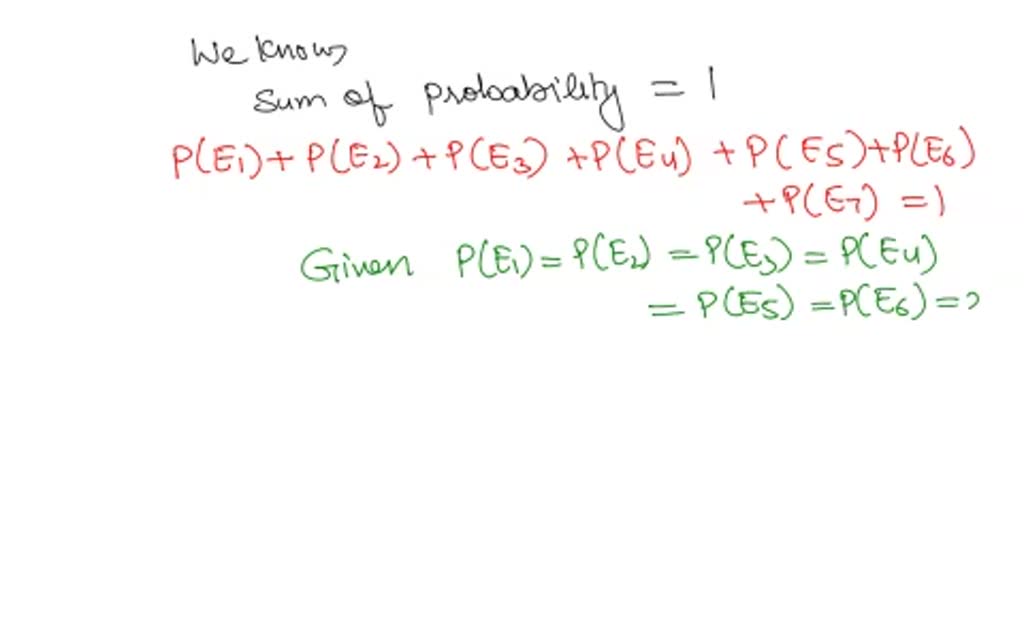 We know
Sum of probability = 1
P(E1) + P(E2) + P(E3) + P(E4) + P(E5) + P(E6)
+ P(E7) = 1
Given P(E1) = P(E2) = P(E3) = P(E4)
= P(E5) = P(E6) =